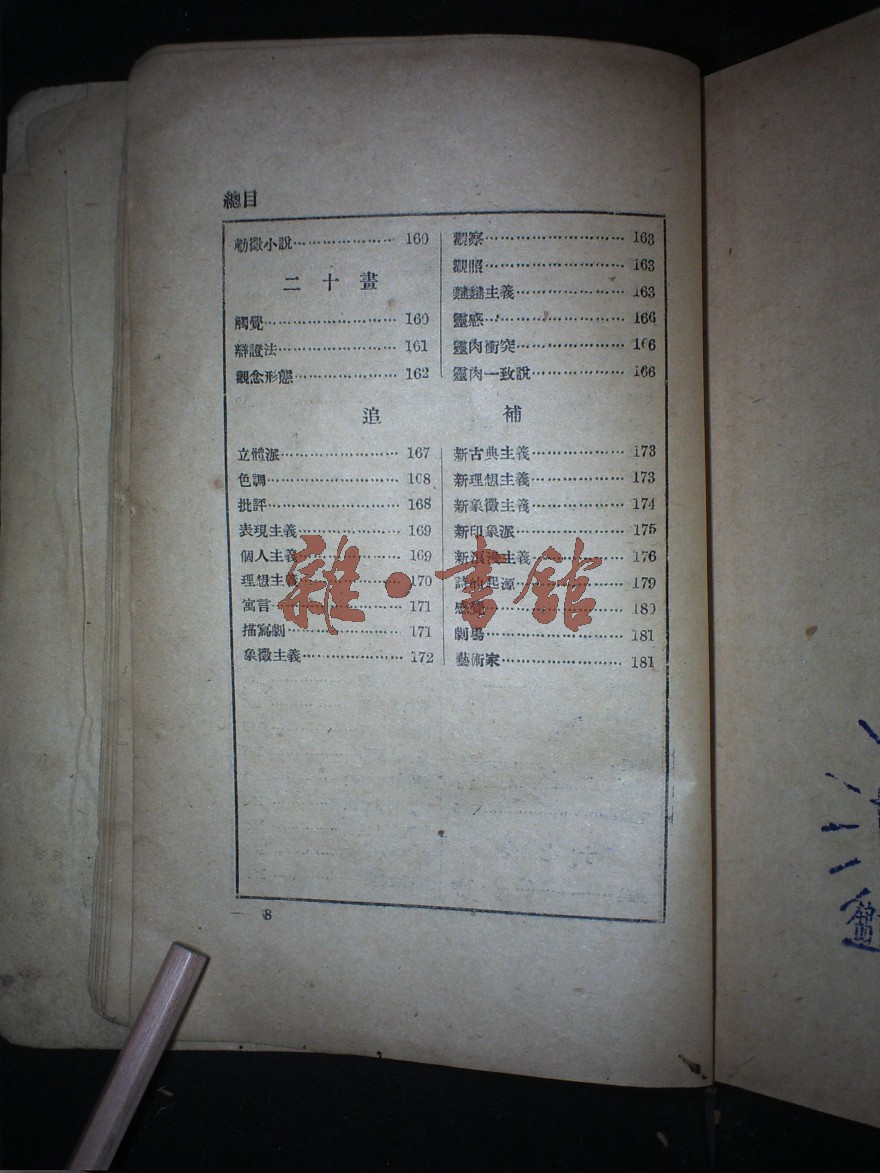 總目
勸徵小說 160
二十畫
觸覺 160
辯證法 161
觀念形態 162
觀察 163
觀照 163
主義 163
靈感 166
靈肉衝突 166
靈肉一致說 166
追補
立體派 167
色調 168
批評 168
表現主義 169
個人主義 169
理想主義 170
寓言 171
描寫劇 171
象徵主義 172
新古典主義 173
新理想主義 173
新象徵主義 174
新印象派 175
新浪漫主義 176
詩的起源 179
感覺 180
劇場 181
藝術家 181
8
雜·書館